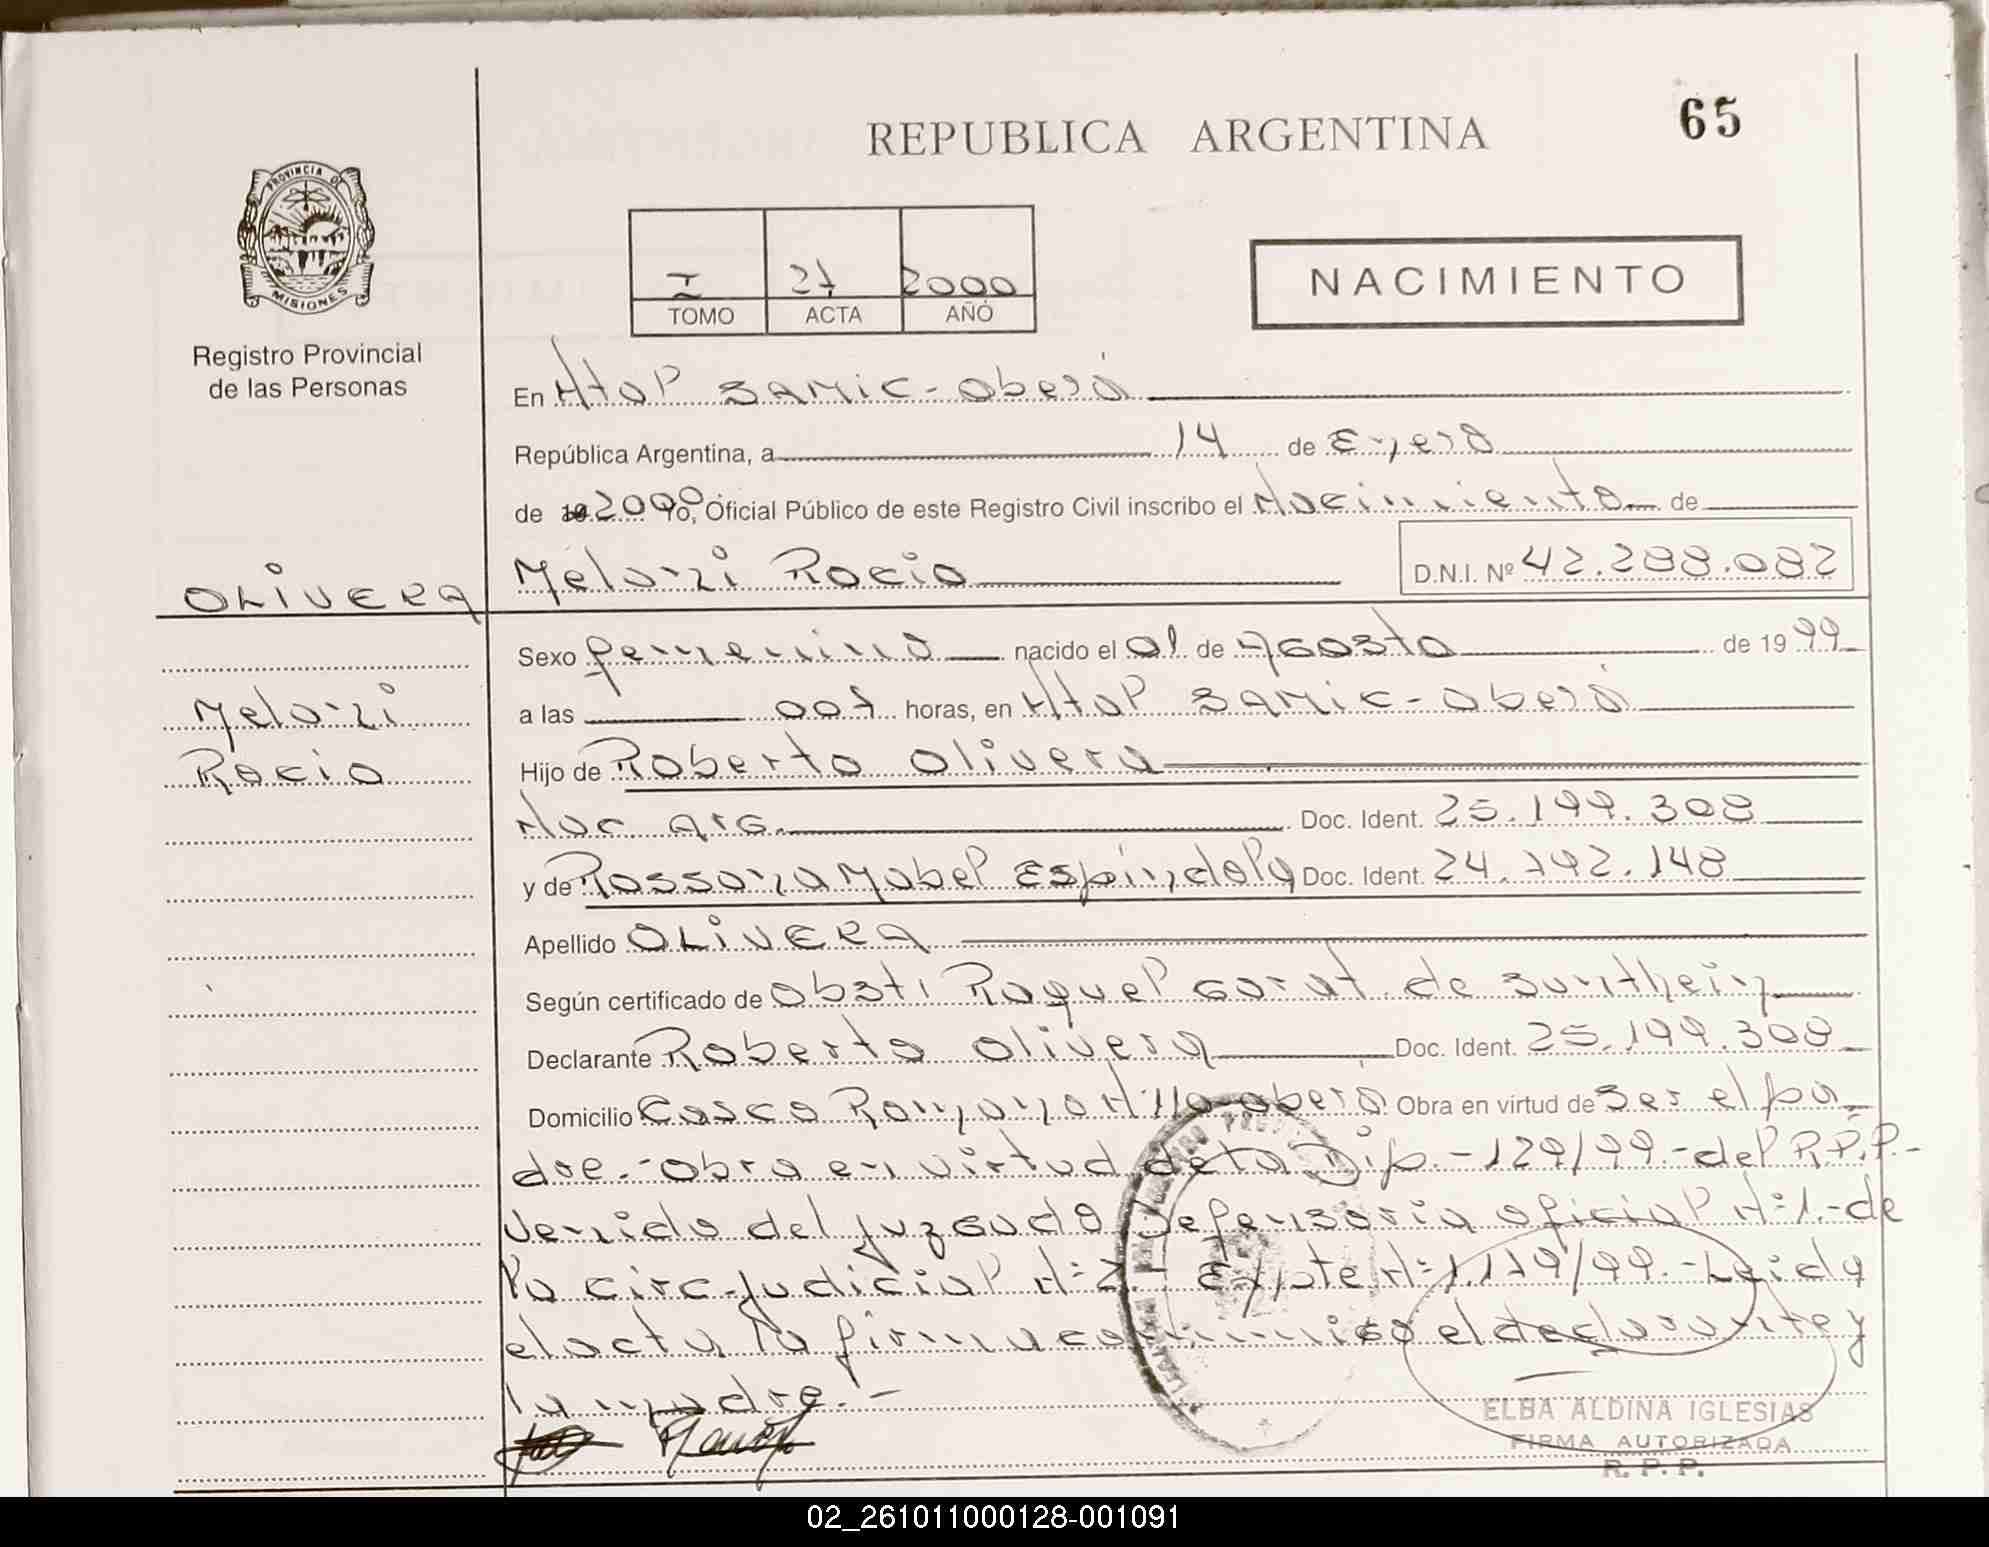 65
REPUBLICA ARGENTINA
PROVINCIA DE
MISIONES
Registro Provincial
de las Personas
I 27 2000
TOMO ACTA AÑO
NACIMIENTO
En Htal SAMIC - Oberá
República Argentina, a 14 de Enero
de 19 2000 Yo, Oficial Público de este Registro Civil inscribo el Nacimiento de
OLIVERA
Melanzi Rocio D.N.I. Nº 42.288.082
Melanzi
Rocio
Sexo femenino nacido el 01 de Agosto de 1999
a las 007 horas, en Htal SAMIC - Oberá
Hijo de Roberto Olivera
Nac Arg. Doc. Ident. 25.199.308
y de Rossana Mabel Espíndola Doc. Ident. 24.792.148
Apellido OLIVERA
Según certificado de Obst. Raquel Garat de
Declarante Roberto Olivera Doc. Ident. 25.199.308
Domicilio Casco Romano Oberá Obra en virtud de ser el pa
dre.- Obra en virtud de la Dip.- 129/99.- del R.P.P.-
venida del juzgado Defensoría oficial Nº 1.- de
la circ. judicial Nº 2. Expte Nº 1.179/99.- Leida
el acta la firma conmigo el declarante y
la madre.-
ELBA ALDINA IGLESIAS
FIRMA AUTORIZADA
R. P. P.
02_261011000128-001091